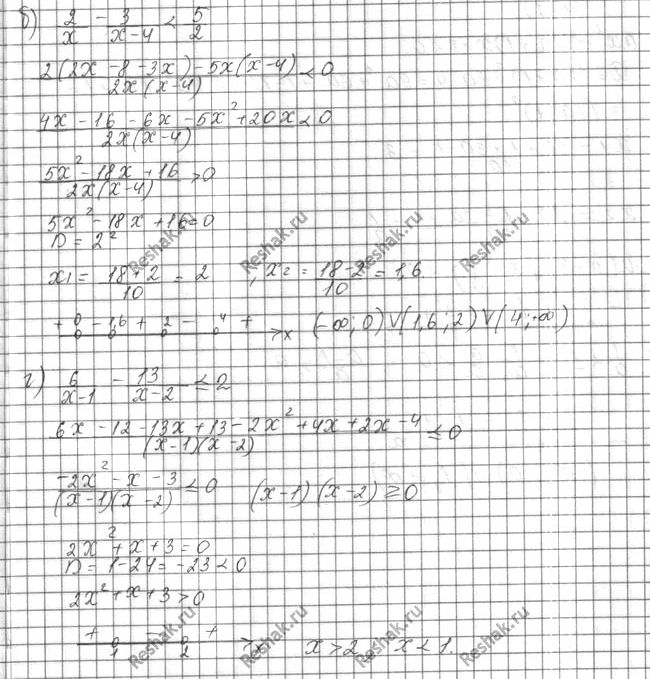 б) 2/x - 3/(x-4) < 5/2
(2(2x - 8 - 3x) - 5x(x-4))/(2x(x-4)) < 0
(4x - 16 - 6x - 5x² + 20x)/(2x(x-4)) < 0
(5x² - 18x + 16)/(2x(x-4)) > 0
5x² - 18x + 16 = 0
D = 2²
x₁ = (18+2)/10 = 2 , x₂ = (18-2)/10 = 1,6.
+ 0 - 1,6 + 2 - 4 + x (-∞; 0) ∨ (1,6; 2) ∨ (4; +∞)
г) 6/(x-1) - 13/(x-2) ≤ 2
(6x - 12 - 13x + 13 - 2x² + 4x + 2x - 4)/((x-1)(x-2)) ≤ 0
(-2x² - x - 3)/((x-1)(x-2)) ≤ 0 (x-1)(x-2) ≥ 0
2x² + x + 3 = 0
D = 1 - 24 = -23 < 0
2x² + x + 3 > 0
+ 1 - 2 + x x > 2 x < 1.
Reshak.ru Reshak.ru Reshak.ru
Reshak.ru Reshak.ru Reshak.ru